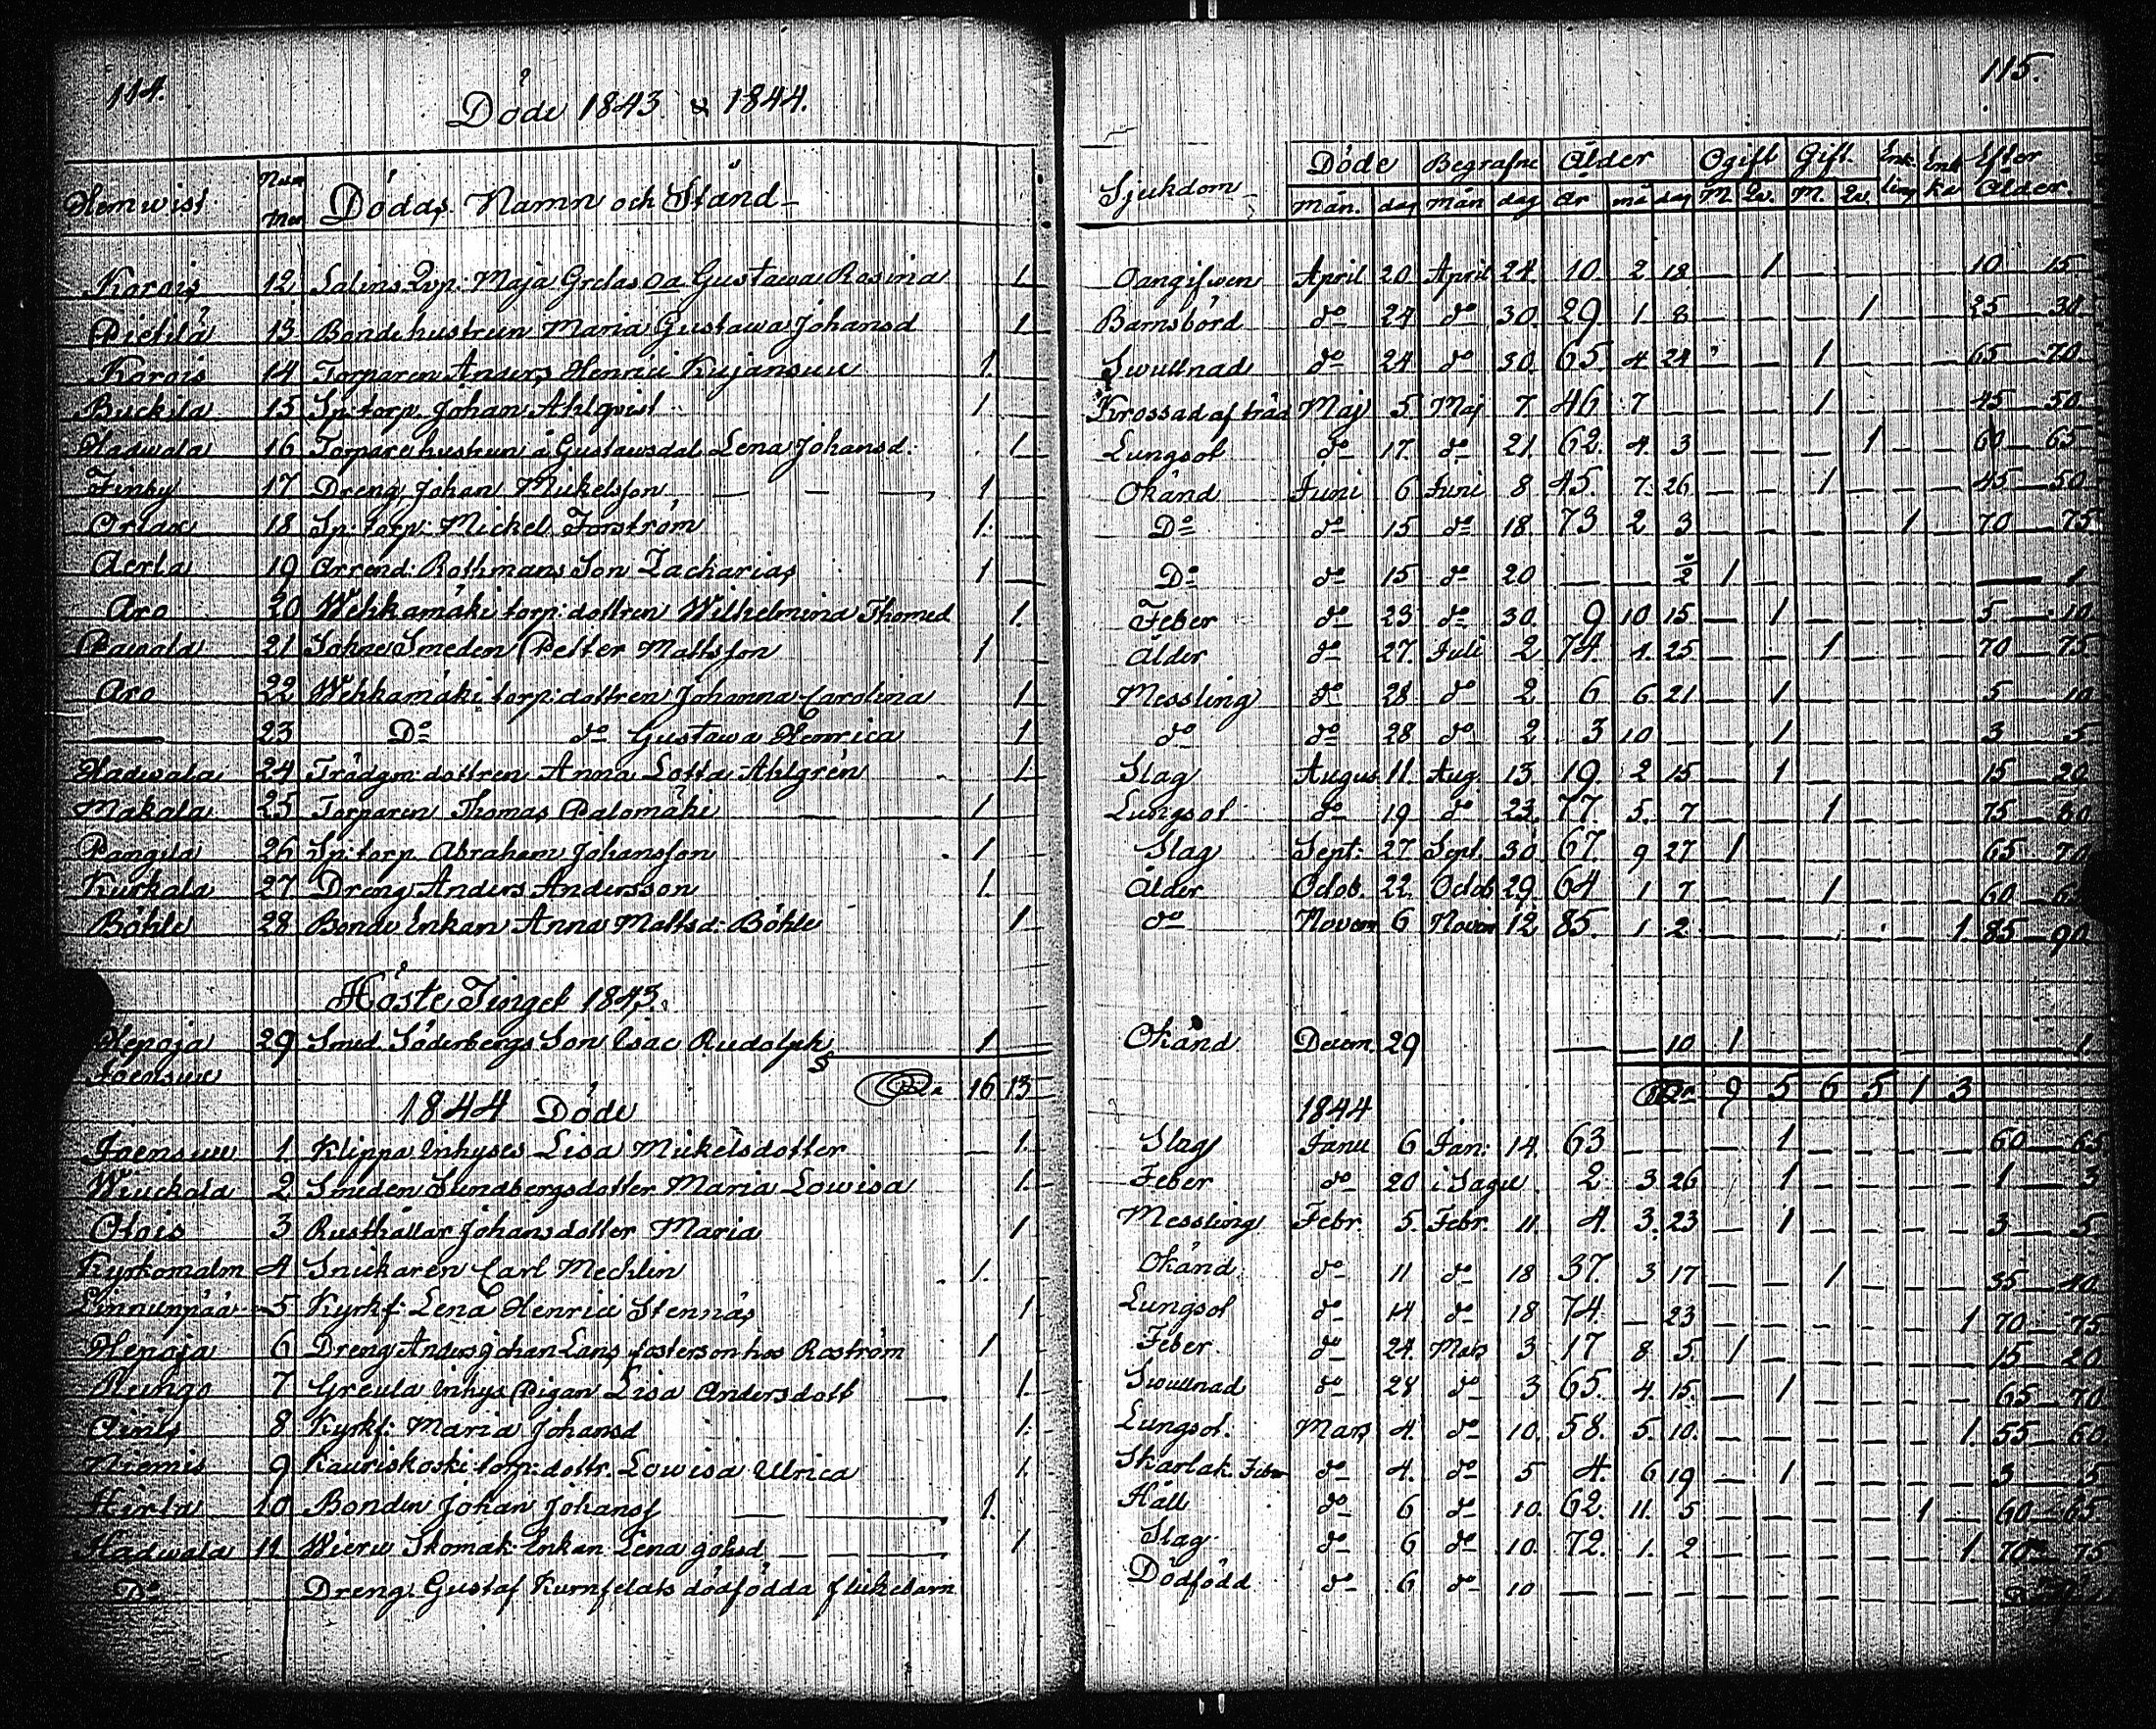 114.
Döde 1843 & 1844.
Hemwist Num mer Dödas Namn och Stånd
Karois 12 Salins Qvp. Maja Gretas oa Gustawa Rosina 1.
Pietilä 13 Bonde hustrun Maria Gustawa Johansd 1
Korois 14 Torparen Anders Henric Kujansuu 1.
Buckila 15 Sp: torp. Johan Ahlqvist 1
Hadwala 16 Torpare hustrun å Gustawsdal Lena Johansd. 1
Finby 17 Dreng Johan Mickelsson 1
Orlax 18 Sp: torp: Mickel Forström 1.
Aerla 19 Arrend: Rothmans Son Zacharias 1
Aro 20 Wehkamäki torp: dottren Wilhelmina Thomed 1.
Pawola 21 Sohne Smeden Petter Mattsson 1
Aro 22 Wehkamäki torp: dottren Johanna Carolina 1
23 Do do Gustawa Henrica 1
Hadwala 24 Trädgm: dottren Anna Lotta Ahlgrén 1.
Makola 25 Torparen Thomas Palomäki 1.
Pangila 26 Sp: torp. Abraham Johansson 1
Kurkola 27 Dreng Anders Andersson 1.
Böhle 28 Bonde Enkan Anna Mattsd: Böhle 1
Höste Tinget 1843.
Hepoja 29 Smed Söderbergs Son Isac Rudolph 1
Joensuu
16 13
1844 Döde
Joensuu 1 Klippa Inhyses Lisa Mickelsdotter 1.
Wiuckola 2 Smeden Sundbergsdotter Maria Lowisa 1.
Olois 3 Rusthållar Johansdotter Maria 1
Kyrkomalm 4 Snickaren Carl Mechlin 1.
Linnunpää 5 Kyrkf: Lena Henric Stennäs 1
Hepoja 6 Dreng Anders Johan Lans fosterson hos Roström 1
Rungo 7 Greula Inhys Pigan Lisa Andersdott 1.
Ainis 8 Kyrkf: Maria Johansd 1.
Niemis 9 Kauriskoski torp: dottr. Lowisa Ulrica 1.
Hirla 10 Bonden Johan Johanss 1.
Hadwala 11 Wieru Skomak: Enkan Lena Johsd 1
Do Dreng Gustaf Kurnfelats dödfödda flickebarn
115.
Sjukdom Döde Begrafne Ålder Ogift Gift Enk ling Enk ka Efter Ålder.
mån. dag mån dag år må dag M. Qv. M. Qv.
Oangifwen April 20 April 24. 10 2 18 1 10 15
Barnsbörd do 24 do 30. 29. 1 8 1 25 30
Swullnad do 24 do 30. 65. 4. 24 1 65 70
Krossad af träd Maj 5 Maj 7 46 7 1 45 50
Lungsot do 17. do 21. 62. 4. 3 1 60 65
Okänd Juni 6 Juni 8 45. 7. 26 1 45 50
Do do 15 do 18. 73 2 3 1 70 75
Do do 15 do 20 1/2 1 1
Feber do 23 do 30. 9 10 15 1 5 10
Ålder do 27. Juli 2 74. 1. 25 1 70 75
Messling do 28 do 2 6 6 21 1 5 10
do do 28 do 2 3 10 1 3 5
Slag Augus. 11. Aug. 13 19. 2 15 1 15 20
Lungsot do 19 do 23. 77. 5. 7 1 75 80
Slag Sept: 27. Sept. 30 67. 9 27 1 65 70
Ålder Octob. 22. Octob 29. 64 1 7 1 60
do Novem 6 Novem 12 85. 1 2 1. 85 90
Okänd Decem. 29 10 1 1
9 5 6 5 1 3
1844
Slag Janu 6 Jan: 14. 63 1 60 65
Feber do 20 i Sagu 2 3 26 1 1 3
Messling Febr. 5. Febr. 11. 4. 3. 23 1 3 5
Okänd do 11 do 18 37. 3 17 1 35 40
Lungsot do 14 do 18 74. 23 1 70 75
Feber do 24. Mars 3 17 8 5. 1 15 20
Swullnad do 28 do 3 65. 4. 15. 1 65 70
Lungsot. Mars 4. do 10. 58. 5. 10. 1. 55 60
Skarlak. Feber do 4. do 5 4. 6 19 1 3 5
Håll do 6 do 10. 62. 11. 5 1 60 65
Slag do 6 do 10. 72. 1. 2 1 70 75
Dödfödd do 6 do 10